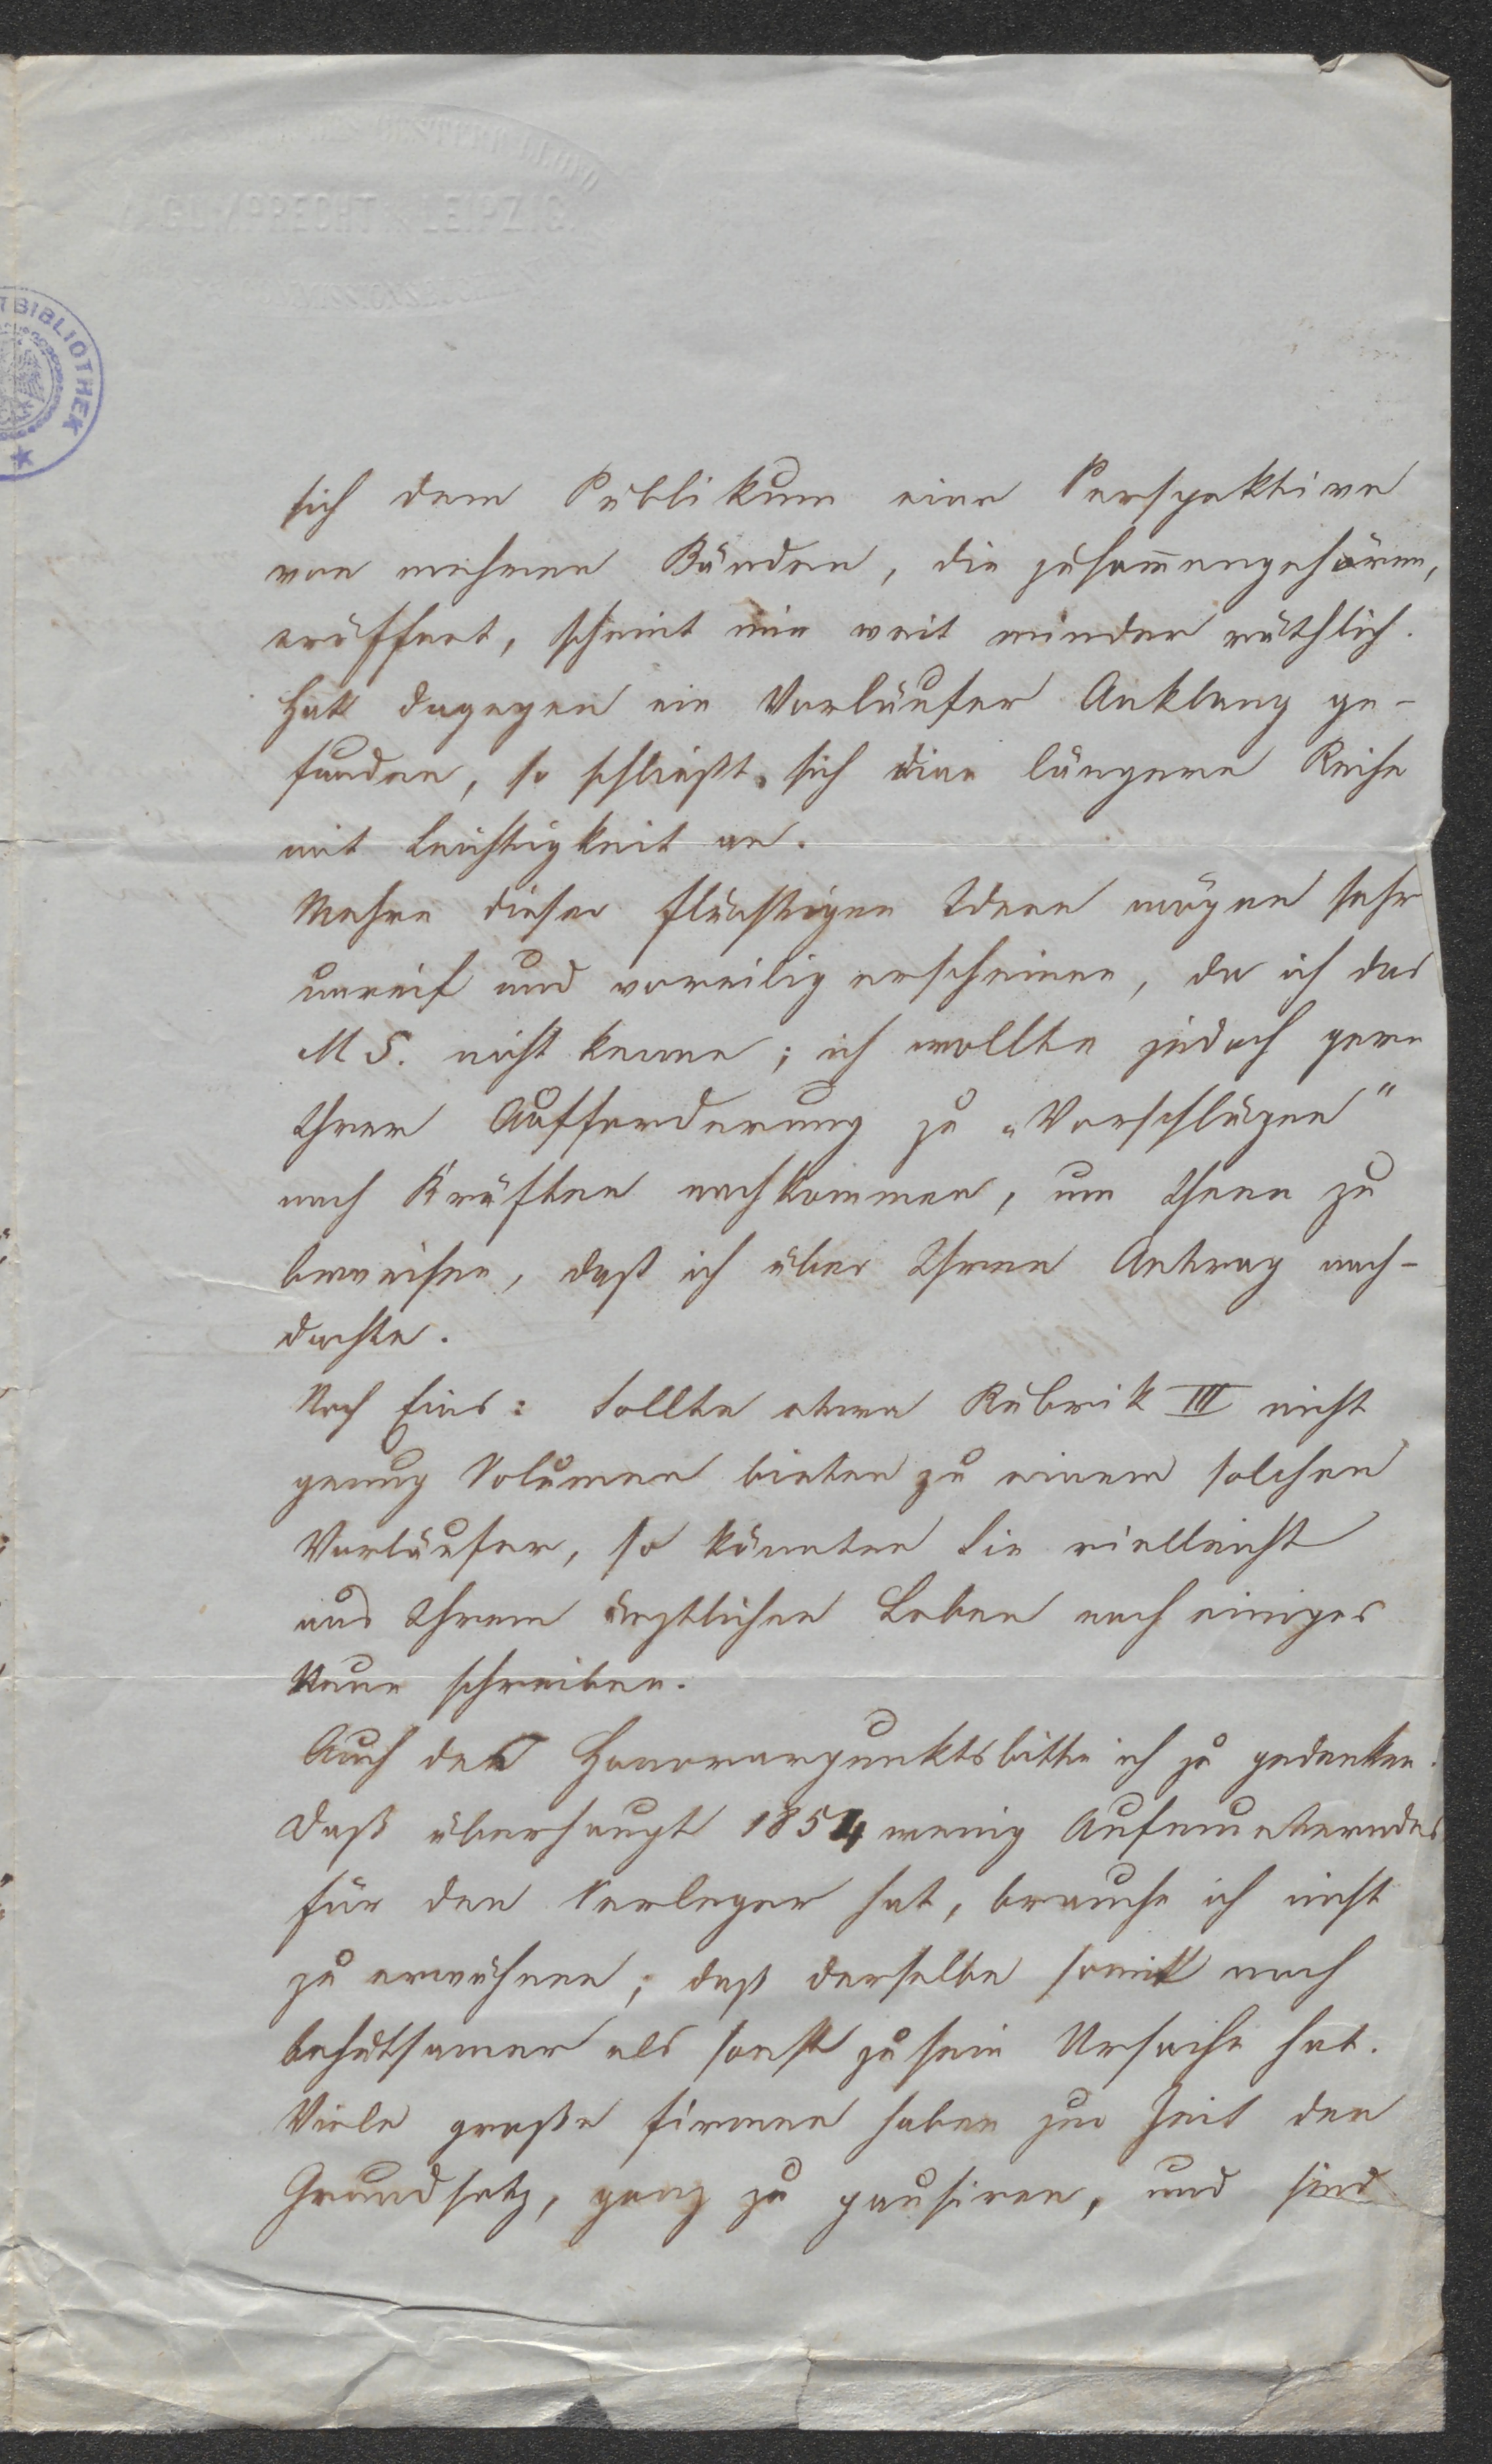 PESTER LLOYD
A. GUMPRECHT LEIPZIG.
TBIBLIOTHEK
sich dem Publikum eine Perspektive
von mehreren Bänden, die zusam̄engehören,
eröffnet, scheint mir weit minder räthlich.
Hat dagegen ein Vorläufer Anklang ge-
funden, so schließt sich eine längere Reihe
mit Leichtigkeit an.
Mehre dieser flüchtigen Ideen mögen sehr
unreif und voreilig erscheinen, da ich das
MS. nicht kenne; ich wollte jedoch gern
Ihrer Aufforderung zu „Vorschlägen“
nach Kräften nachkommen, um Ihnen zu
beweisen, daß ich über Ihren Antrag nach-
dachte.
Noch Eins: Sollte etwa Rubrik III nicht
genug Volumen bieten zu einem solchen
Vorläufer, so könnten Sie vielleicht
aus Ihrem ärztlichen Leben noch einiges
Neue schreiben.
Auch des Honorarpunkts bitte ich zu gedenken.
Daß überhaupt 1854 wenig Aufmunterndes
für den Verleger hat, brauche ich nicht
zu erwähnen; daß derselbe somit noch
behutsamer als sonst zu sein Ursache hat.
Viele große Firmen haben zur Zeit den
Grundsatz, ganz zu pausiren, und sind